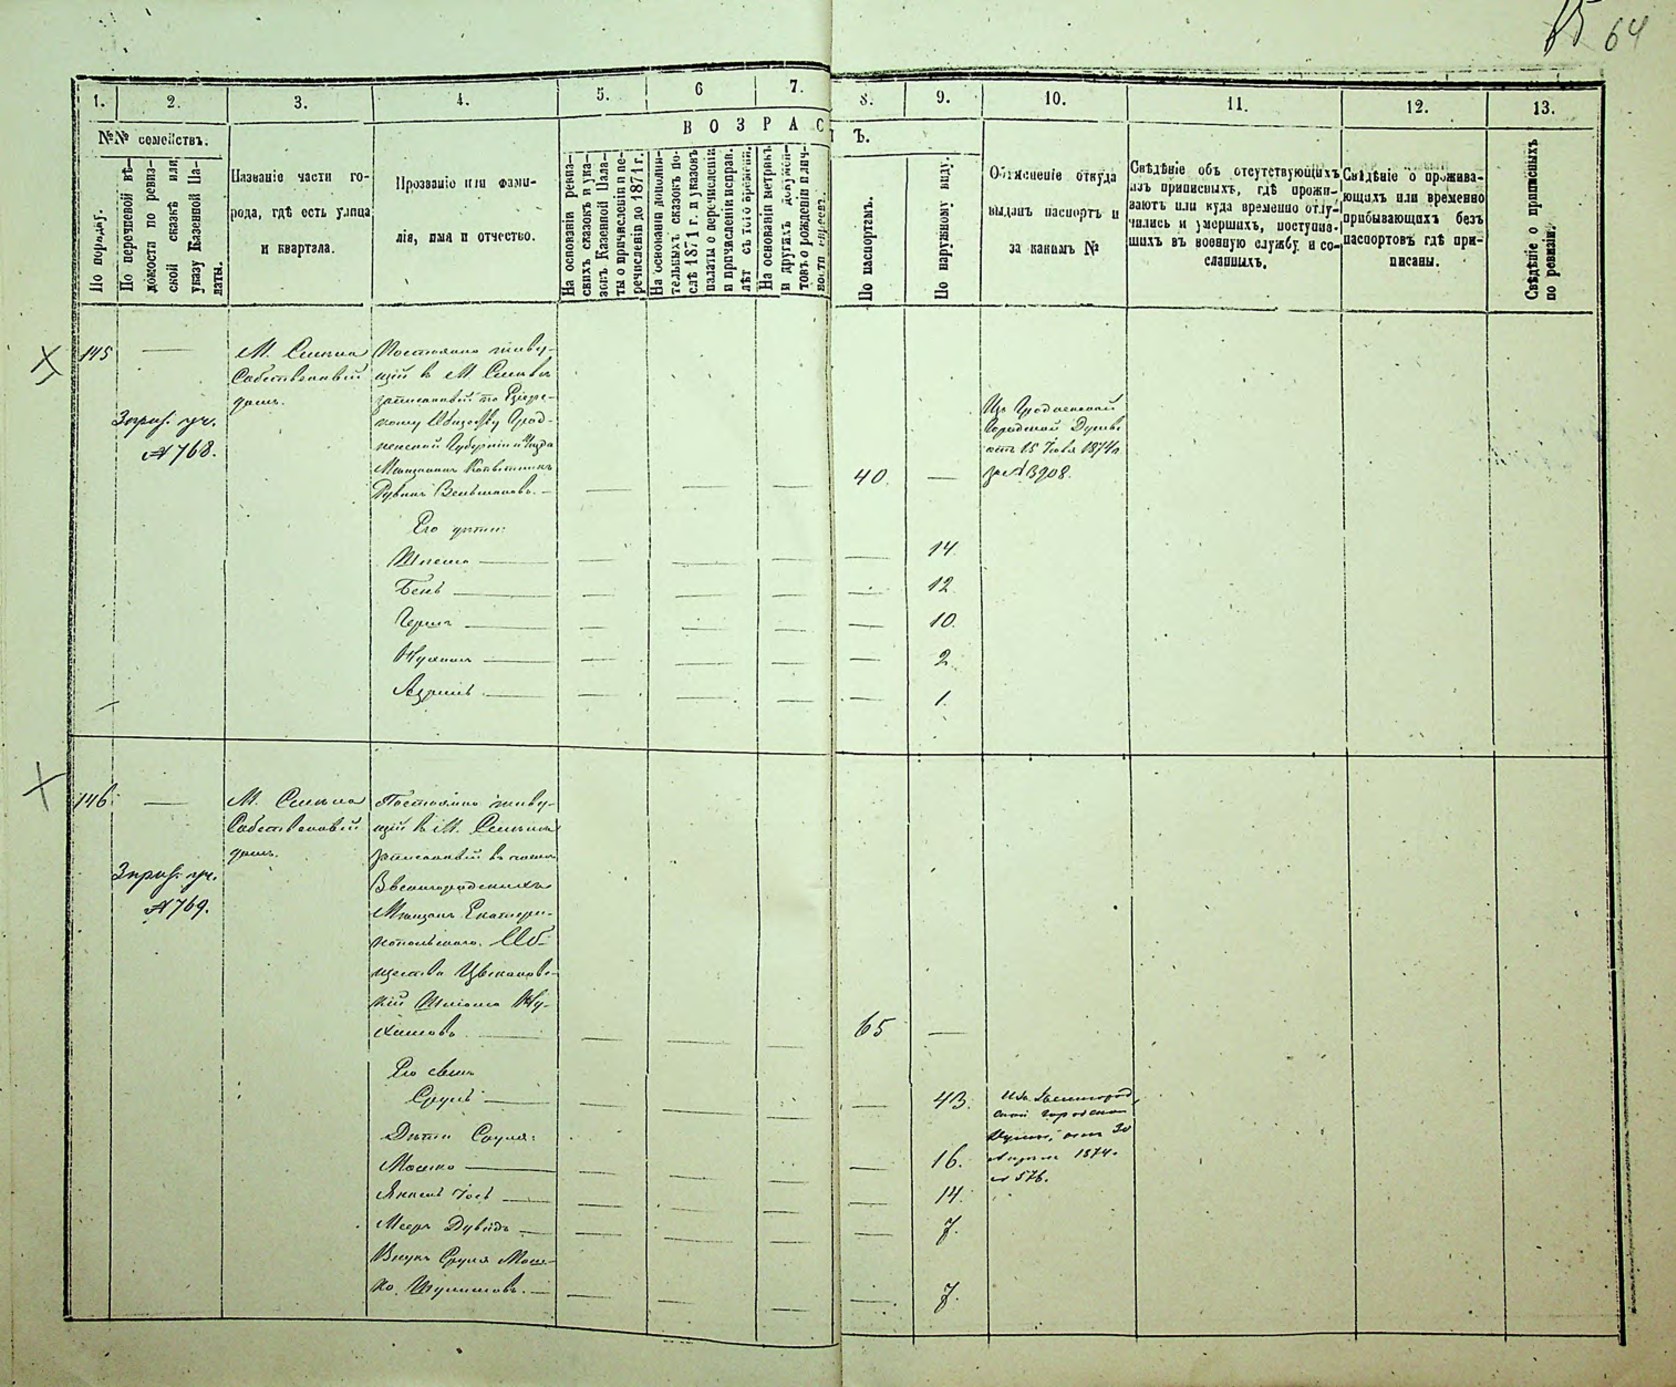 65 64
1. 2. 3. 4. 5. 6 7. 8. 9. 10. 11. 12. 13.
№№ семействъ.
В О З Р А С Т Ъ.
По порядку.
По перечневой вѣ-
домости по ревиз-
ской сказкѣ или
указу Казенной Па-
латы.
Названіе части го-
рода, гдѣ есть улица
и квартала.
Прозваніе или фами-
лія, имя и отчество.
На основаніи ревиз-
скихъ сказокъ и ука-
зокъ Казенной Пала-
ты о причисленіи и пе-
речисленіи до 1871 г.
На основаніи дополни-
тельныхъ сказокъ по-
слѣ 1871 г. и указокъ
палаты о перечисленіи
и причисленіи исправ.
лѣт съ того времени.
На основаніи метрикъ
и другихъ докумен-
товъ о рожденіи и лич-
ности евреевъ.
По паспортамъ.
По наружному виду.
Объясненіе откуда
выданъ паспортъ и
за какимъ №
Свѣдѣніе объ отсутствующихъ
изъ приписныхъ, гдѣ прожи-
ваютъ или куда временно отлу-
чились и умершихъ, поступив-
шихъ въ военную службу и со-
сланныхъ.
Свѣдѣніе о прожива-
ющихъ или временно
прибывающихъ безъ
паспортовъ гдѣ при-
писаны.
Свѣдѣніе о приписныхъ
по ревизіи.
145 —
М. Смѣла
Собственный
домъ.
№ 768.
Постоянно живу-
щій в М. Смѣла
записанный по
Гуверніи и Уѣзда
Рувинъ
40. —
Изъ Гродненской
Городской Думы
отъ 15 1874 г.
за № 3908.
Его дѣти:
Шлема — 14.
Бень — 12
Герша — 10.
Нухимъ — 2
1.
146. —
М. Смѣла
Собственный
домъ.
№ 769.
Постоянно живу-
щій в М. Смѣла
записанный въ
Звенигородскихъ
Мѣщанъ Екатери-
нопольскаго Об-
щества
Ну-
химовъ 65 —
Его сынъ
Сруль — 43.
Изъ Звенигород
ской городской
Думы, отъ 30
Апрѣля 1874.
№ 576.
Дѣти Сруля:
Мошко — 16.
Янкель Іось — 14.
Мееръ Дувидъ — 7.
Внукъ Сруля Мош-
ко — 7.